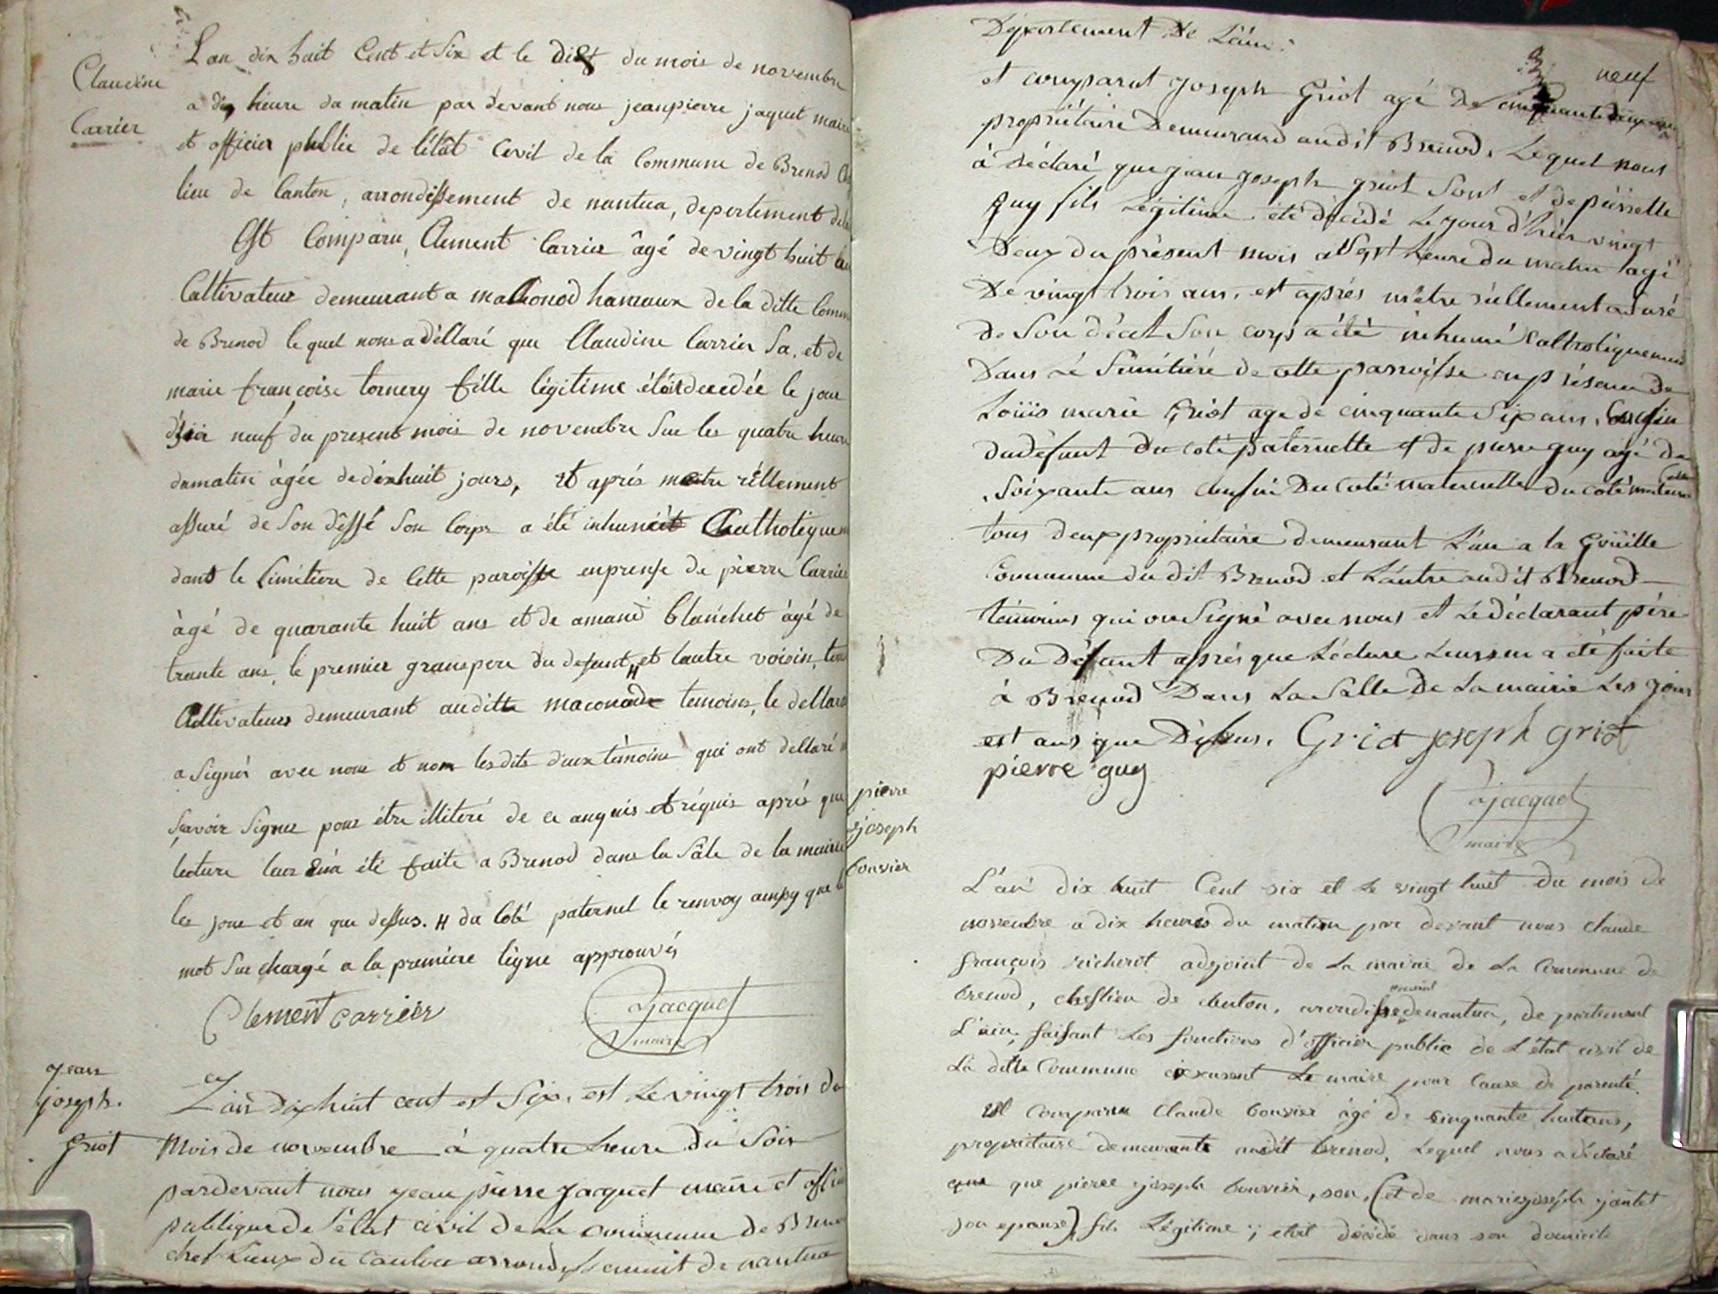 Claudine
Carrier
L'an dix huit Cent et Six et le dix du mois de novembre
a dix heure du matin par devant nous jeanpierre jaquet maire
et officier publie de l'état Cevil de la Commune de Brenod
lieu de Canton, arrondissement de nantua, depertement de
Est Comparu, Clement Carrier âgé de vingt huit
Cultivateur demeurant a maconod hameaux de la ditte Comm
de Brenod le quel nous a déllaré que Claudine Carrier Sa, et de
marie françoise tornery fille légitime décedée le jour
d'hier neuf du present mois de novembre Sur les quatre heure
dumatin âgée de dixhuit jours, et aprés réllement
assuré de Son déssé Son Corps a été inhumé Chatholiquem
dans le Simétiere de Cette paroisse enprense de pierre Carrier
âgé de quarante huit ans et de amand blanchet âgé de
trante ans, le premier granspere du defunt H et lautre voisin, tous
Cultivateurs demeurant auditte maconod temoins, le dellara
a Signér avec nous et non lesdits deux témoins qui ont dellaré
sçavoir Signer pour étre illiteré de ce anquis et réquis aprés que
lecture leur éna été faite a Brenod dans la Sâle de la mairie
les jour et an que dessus. H du Coté paternel le renvoy ainsy que le
mot Sur chargé a la premiere ligne approuvés
Clement Carrier
Jacquet
maire
jean
joseph.
griot
L'an Dixhuit cent est Six. est Le vingt trois du
Mois de novembre à quatre heure Du Soir
pardevant nous jean pierre jacquet maire et offic
publique de l'état civil de La commune de Breno
chef Lieux du Canton arrondissement de nantua
Département De L'ain.
neuf
et comparut joseph Griot agé de cinquante deux ans
propriétaire Demeurand audit Brenod. Lequel nous
à Déclaré que jean joseph griot Sont et de pierrette
guy fils Légitime été décédé Le jour d'hier vingt
Deux du présent mois a Sept heure du matin agé
De vingt trois ans, est aprés m'étre réellement assuré
De Son décet Son corps a été inhumé Catholiquement
Dans Le Simétiére de cette parroisse en présence De
Loüis marie Griot age de cinquante Six ans. Cousin
du défunt Du coté paternelle et de pierre guy agé de
Soixante ans cousin Du coté maternelle du coté
tous deux propriétaire demeurant L'un a la Gouille
Commune du dit Brenod et L'autre audit Brenod
témoins qui on Signé avec nous et Le déclarant pére
Du Défunt aprés que Lecture Leur en a été faite
à Brenod Dans La Salle De La mairie Les jour
est ans que Dessus. Griot joseph griot
pierre guy
Jacquet
maire
pierre
joseph
bouvier
L'an dix huit Cent six et le vingt huit du mois de
novembre a dix heures du matin par devant nous claude
françois richerot adjoint de la mairie de la Commune de
brenod, cheflieu de canton, arondissement de nantua, departement
L'ain, faisant Les fonctions d'officier public de L'état civil de
La ditte Commune excusant Le maire pour Cause de parenté.
est Comparu Claude bouvier âgé de cinquante huit ans,
propriétaire demeurante audit brenod, Lequel nous a déclaré
que que pierre joseph bouvier, son, (et de marie joseph jantet
son epouse) fils Légitime ; etoit décédé dans son domicile